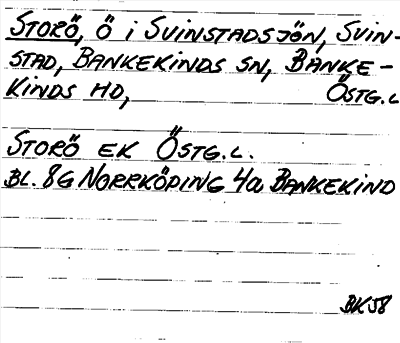 STORÖ, Ö i SVINSTADSSJÖN, SVIN-
STAD, BANKEKINDS SN, BANKE-
KINDS HD, ÖSTG.L
STORÖ EK ÖSTG.L.
BL. 8G NORRKÖPING 4a BANKEKIND
BK58